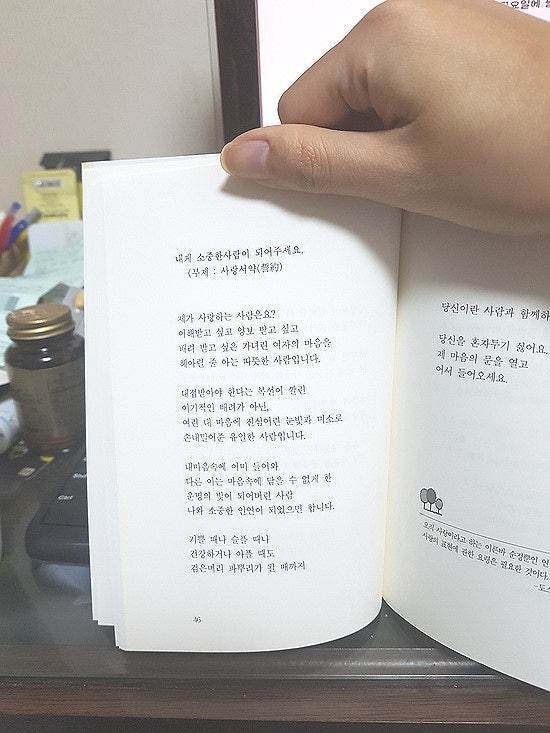 요일에
내게 소중한사람이 되어주세요.
(부제 : 사랑서약(誓約)
제가 사랑하는 사람은요?
이해받고 싶고 양보 받고 싶고
배려 받고 싶은 가녀린 여자의 마음을
헤아릴 줄 아는 따뜻한 사람입니다.
대접받아야 한다는 복선이 깔린
이기적인 배려가 아닌,
여린 내 마음에 진심어린 눈빛과 미소로
손내밀어준 유일한 사람입니다.
내마음속에 이미 들어와
다른 이는 마음속에 담을 수 없게 한
운명의 빛이 되어버린 사람
나와 소중한 인연이 되었으면 합니다.
기쁠 때나 슬플 때나
건강하거나 아플 때도
검은머리 파뿌리가 된 때까지
46
당신이란 사람과 함께하
당신을 혼자두기 싫어요.
제 마음의 문을 열고
어서 들어오세요.
오직 사랑이라고 하는 이른바 순정뿐인 연
사랑의 표현에 관한 요령은 필요한 것이다.
-도스
Shift
Ctrl